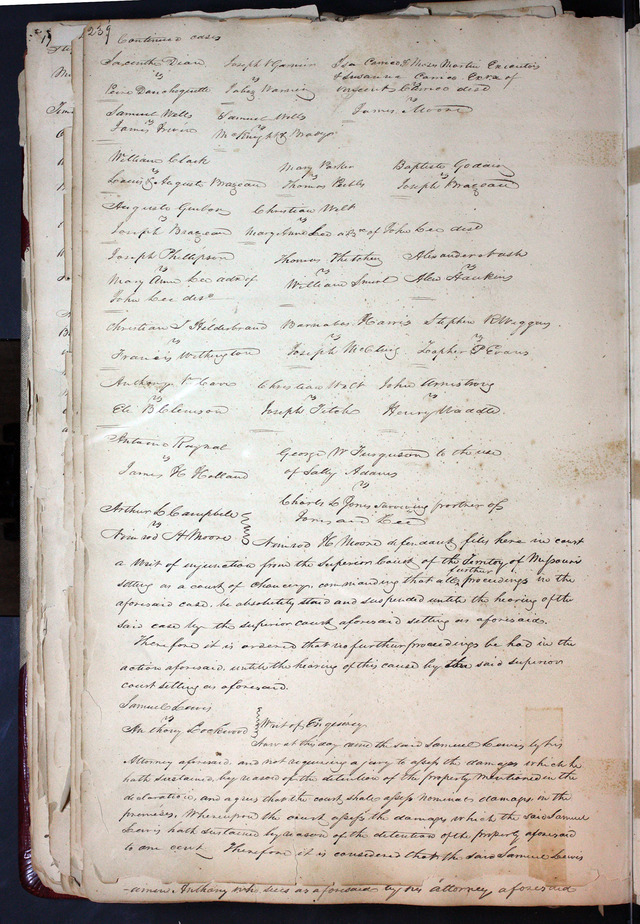 239
Continued cases
Jacinth Dian Joseph V Garnier Isa Camos & Moses Martin Executors
vs vs & Susanna Camos Exrx of
Peire Danchequette Jabez Warner vincent Camos decd
Samuel Wells Samuel Wells vs
vs vs James Moore
James Irwin McKnight & Brady
William Clark Mary Parker Baptiste
vs vs vs
Louis & Auguste Brazeau Thomas Joseph Brazeau
Auguste Guibor Christian Wilt
vs vs
Joseph Brazeau Mary Anne Lee adx of John Lee decd
Joseph Phillipson Thomas Fletcher Alexander Nash
vs vs vs
Mary Anne Lee adx of William Smith Alex Hawkins
John Lee decd
Christian S Hildebrand Barnabas Harris Stephen R Wiggins
vs vs vs
Francis Withington Joseph McClurg Joseph P Evans
Anthony V Carr Christian Wilt John Armstrong
vs vs vs
Eli B Clemson Joseph Titch Henry Waddle
Antoine Raynal George W Ferguson to the use
vs of Sally Adams
James H Holland vs
Charles L Jones Surviving partner of
Jones and Lee
Arthur L Campbell
vs
Nimrod H Moore Nimrod H Moore defendant files here in court
a writ of injunction from the Superior Court of the Territory of Missouri
sitting as a court of chancery, commanding that all further proceedings in the
aforesaid case be absolutely staid and suspended until the hearing of the
said case by the superior court aforesaid setting as aforesaid.
Therefore it is ordered that no further proceedings be had in the
action aforesaid until the hearing of this cause by the said superior
court setting as aforesaid.
Samuel Lewis
vs
Anthony Lockwood Writ of Enquiry
Now at this day came the said Samuel Lewis by his
Attorney aforesaid, and not requiring a jury to assess the damages which he
hath sustained by reason of the detention of the property mentioned in the
declaration, and agrees that the court shall assess nominal damages in the
premises. Whereupon the court assess the damages which the said Samuel
Lewis hath sustained by reason of the detention of the property aforesaid
to one cent. Therefore it is considered that the said Samuel Lewis
Anthony who sues as aforesaid by his attorney aforesaid